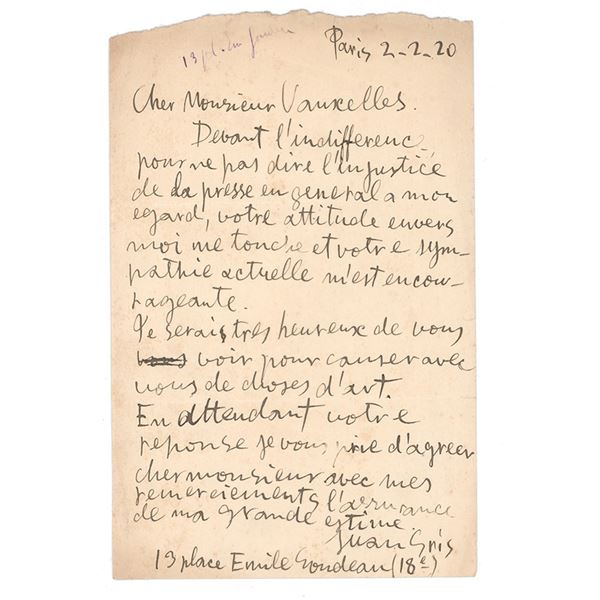 13 pl. Em
Paris 2-2-20
Cher Monsieur Vauxelles.
Devant l'indifference
pour ne pas dire l'injustice
de la presse en general a mon
egard, votre attitude envers
moi me touche et votre sym-
pathie actuelle m'est encou-
rageante.
Je serais tres heureux de vous
voir pour causer avec
vous de choses d'art.
En attendant votre
reponse je vous prie d'agreer
cher monsieur avec mes
remerciements l'assurance
de ma grande estime
Juan Gris
13 place Emile Goudeau (18e)